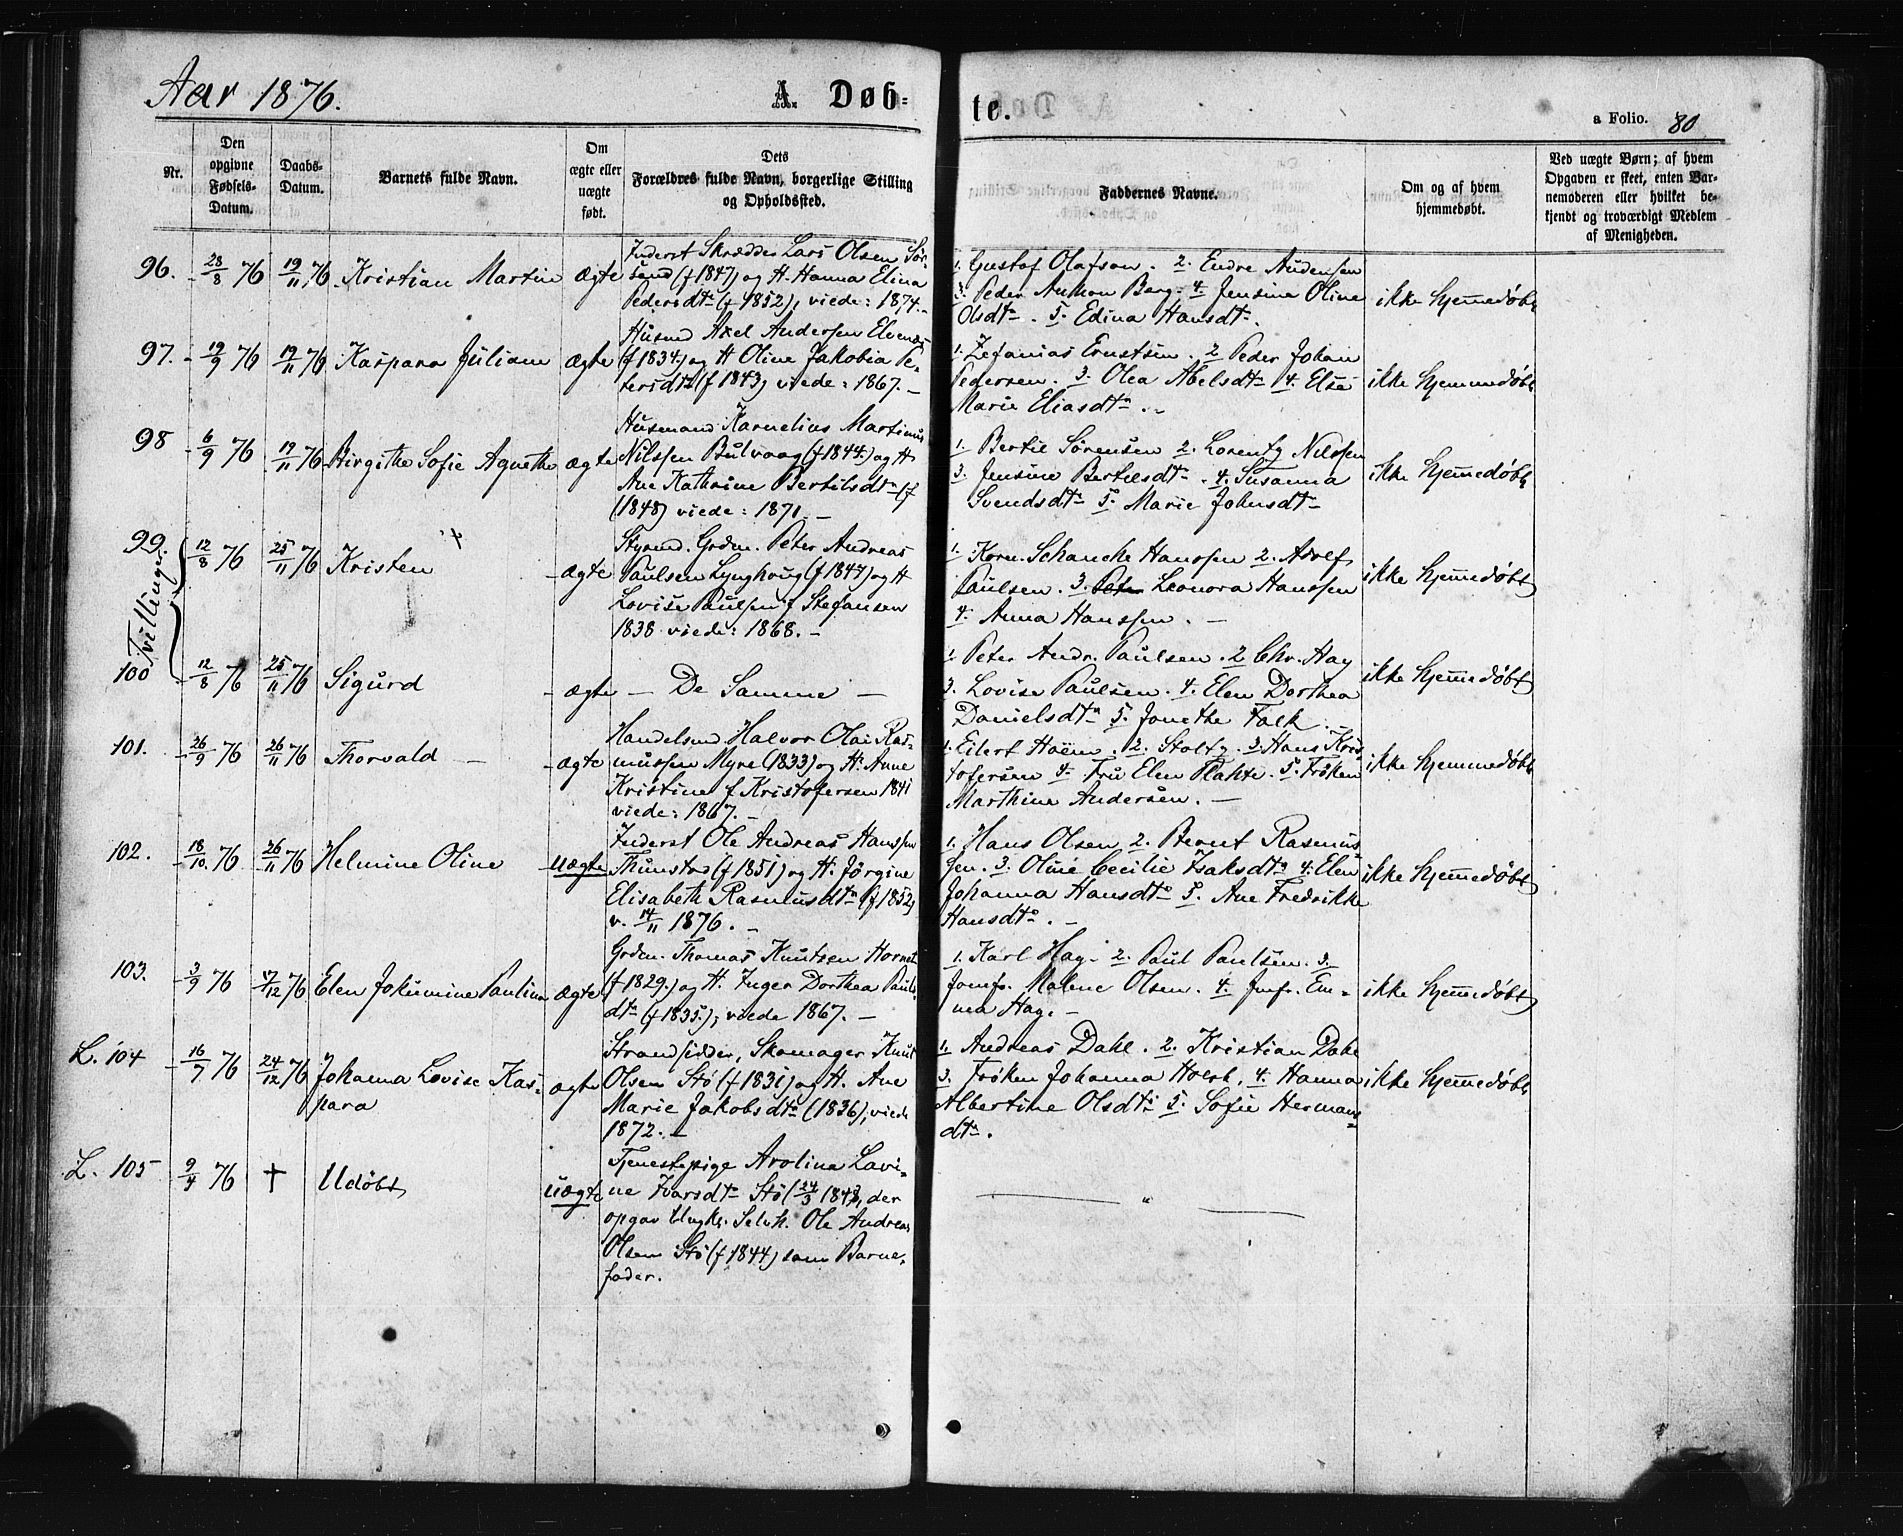 Aar 1876.
A. Døb-
te.
a Folio. 80
Nr.
Den
opgivne
Fødsels-
Datum.
Daabs-
Datum.
Barnets fulde Navn.
Om
ægte eller
uægte
født.
Dets
Forældres fulde Navn, borgerlige Stilling
og Opholdssted.
Faddernes Navne.
Om og af hvem
hjemmedøbt.
Ved uægte Børn; af hvem
Opgaven er skeet, enten Bar-
nemoderen eller hvilket be-
kjendt og troværdigt Medlem
af Menigheden.
96. 28/8 76 19/11 76 Kristian Martin ægte
Inderst Skrædder Lars Olsen Sør-
sand (f 1847) og H. Hanna Elina
Pedersdtr (f 1852), viede: 1874. -
1. Gustaf Olafson. 2. Endre Andersen
3. Peder Ankon Berg. 4. Jensine Oline
Olsdtr. 5. Edina Hansdtr.
ikke hjemmedøbt
97. 19/9 76 19/11 76 Kaspara Juliam ægte
Husmd Axel Andersen Elvenæs
(f 1834.) og H Oline Jakobia Pe-
tersdtr (f 1843) viede: 1867. -
1. Zefanias Ernstsen. 2 Peder Johan
Pedersen. 3. Olea Abelsdtr 4. Else
Marie Eliasdtr. -
ikke hjemmedøbt
98 6/9 76 19/11 76 Birgithe Sofie Agnethe ægte
Husmand Kornelius Martinus
Nilssen Bulvaag (f 1844.) og H
Ane Kathrine Bertilsdtr (f
(1848) viede: 1871. -
1. Bertil Sørensen 2. Lorentz Nilssen
3. Jensine Bertilsdtr. 4. Susanna
Svendsdtr 5. Marie Johnsdtr
ikke hjemmedøbt
Tvillinger
99. 12/8 76 25/11 76 Kristen - ægte
Styrmd. Grdm. Peter Andreas
Paulsen Lynghoug (f 1847) og H
Lovise Paulsen f Stefansen
1838 viede: 1868. -
1. Korn. Schanche Hanssen 2. Adolf
Paulsen. 3. Leonora Hanssen
4. Anna Hanssen. -
ikke hjemmedøbt
100 12/8 76 25/11 76 Sigurd - ægte - De Samme -
1. Peter Andr. Paulsen. 2 Chr. Hag
3. Lovise Paulsen. 4. Elen Dorthea
Danielsdtr 5. Jonethe Falk. -
ikke hjemmedøbt
101. 26/9 76 26/11 76 Thorvald - - ægte
Handelsmd Halvor Olai Ras-
mussen Myre (1833) og H. Anne
Kristine f Kristofersen 1841
viede: 1867. -
1. Eilert Hoëm. 2. Stoltz. 3. Hans Kris
tofersen 4. Fru Elen Plahte. 5. Frøken
Marthine Andersen. -
ikke hjemmedøbt
102. 18/10. 76 26/11 76 Helmine Oline uægte
Inderst Ole Andreas Hanssen
Thunstad (f 1851) og H. Jørgine
Elisabeth Rasmusdtr (f 1852)
v. 14/11 1876. -
1. Hans Olsen 2. Bernt Rasmus
sen. 3. Oline Cecilie Isaksdtr 4. Elen
Johanna Hansdtr 5. Ane Fredrikke
Hansdtr. -
ikke hjemmedøbt
103. 3/9 76 17/12 76 Elen Jokumine Paulina ægte
Grdm. Thomas Knutsen Hornet
(f 1829.) og H. Inger Dorthea Pauls-
dtr (f 1835.); viede 1867. -
1. Karl Hag. 2. Paul Paulsen. 3.
Jomfr. Malene Olsen. 4. Jmfr. Em-
ma Hag. -
ikke hjemmedøbt
L. 104 16/7 76 24/12 76 Johanna Lovise Kas-
para
ægte
Strandsidder, Skomager Knut
Olsen Stö (f 1831) og H. Ane
Marie Jakobsdtr (1836), viede
1872. -
1. Andreas Dahl. 2. Kristian Dahl
3. Frøken Johanna Holst. 4. Hanna
Albertine Olsdtr 5. Sofie Hermans
dtr.
ikke hjemmedøbt
L. 105 9/4 76 † Udøbt uægte
Tjenestepige Arolina Lavi-
ne Ivarsdtr Stö (24/3 1843, der
opgav Ungk. Selvh. Ole Andreas
Olsen Stö (f 1844) som Barne-
fader.